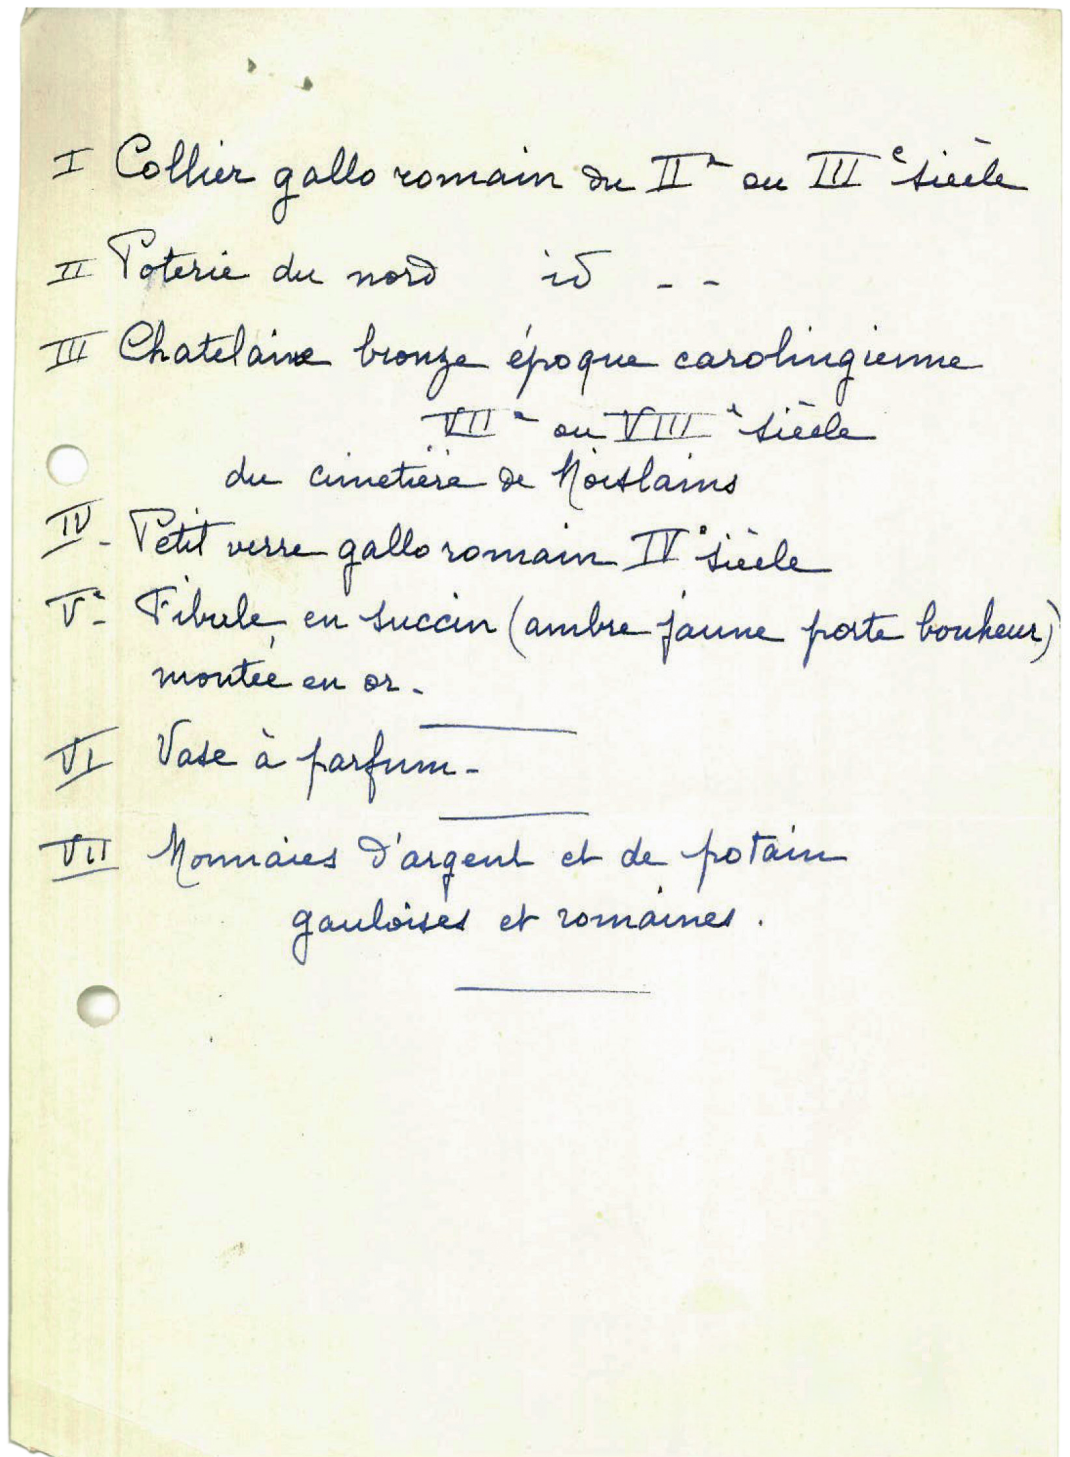 I Collier gallo romain du IIe ou IIIe siècle
II Poterie du nord id - -
III Chatelaine bronze époque carolingienne
VIIe ou VIIIe siècle
du cimetière de Moislains
IV - Petit verre gallo romain IVe siècle
Ve - Fibule en succin (ambre jaune porte bonheur)
montée en or -
VI Vase à parfum -
VII Monnaies d'argent et de potain
gauloises et romaines.